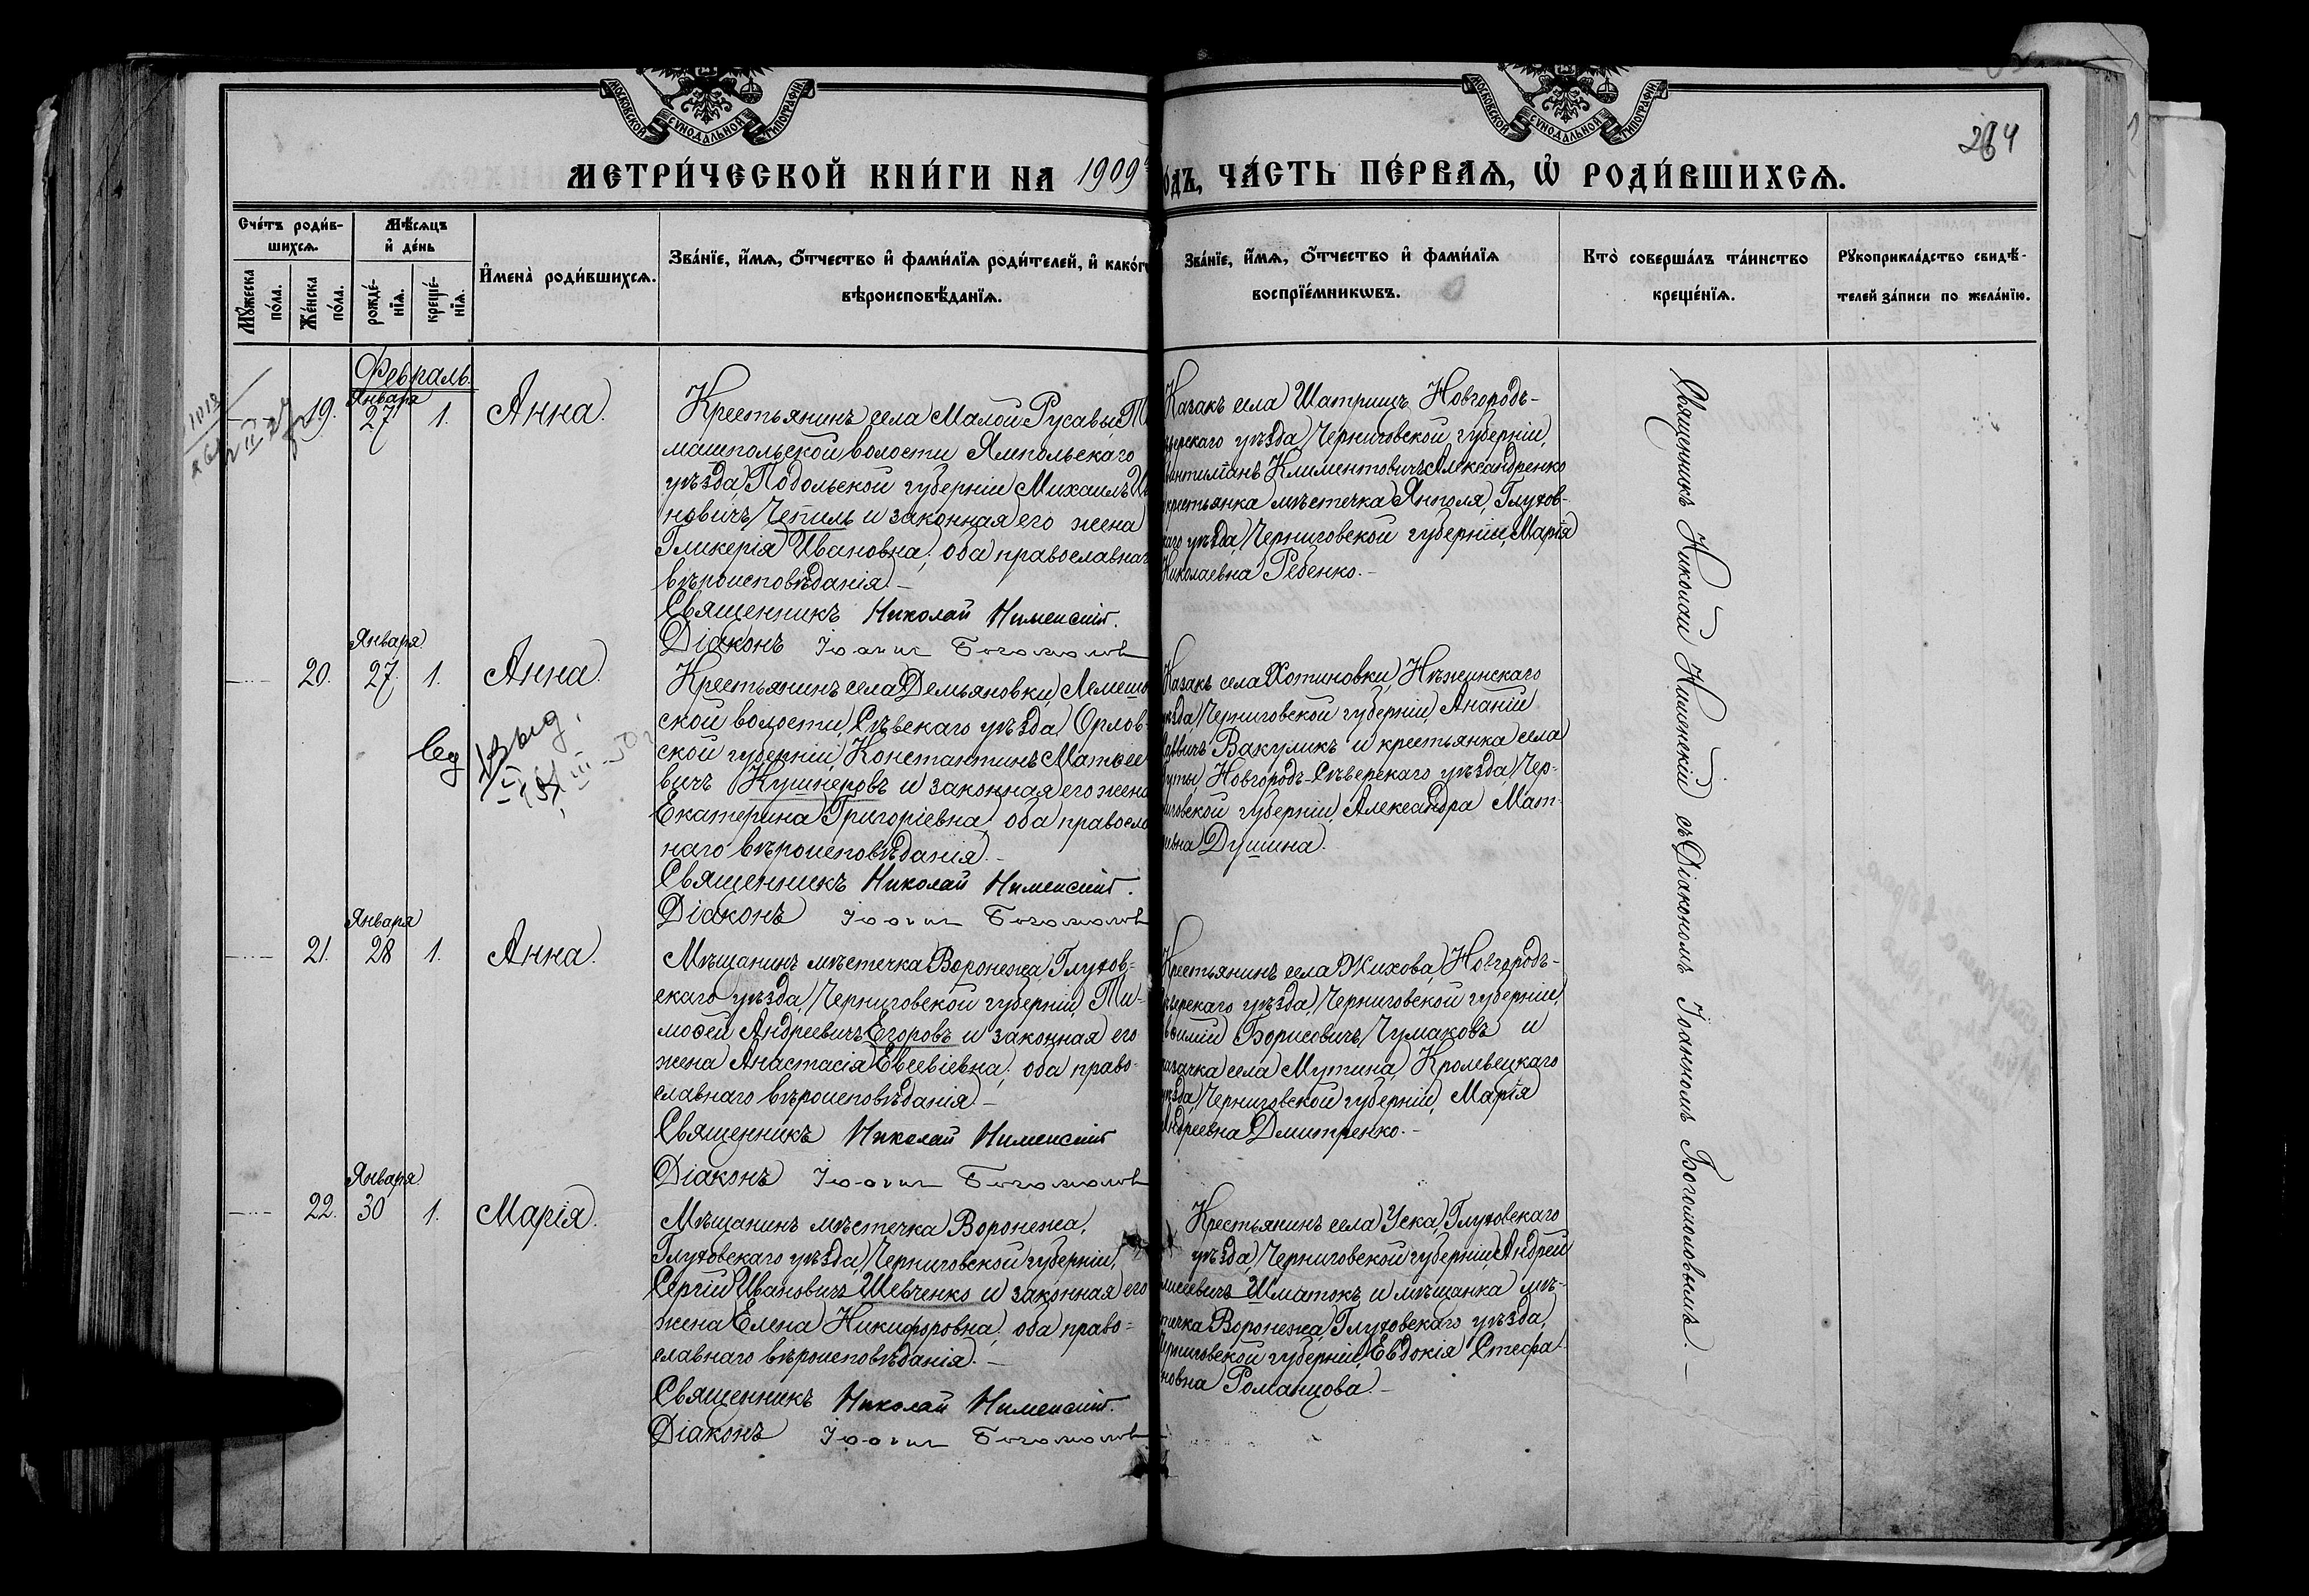 МОСКОВСКОЙ СѴНОДАЛЬНОЙ ТИПОГРАФІИ
МОСКОВСКОЙ СѴНОДАЛЬНОЙ ТИПОГРАФІИ
264
МЕТРИ́ЧЕСКОЙ КНИ́ГИ НА 1909
О́ДЪ, ЧА́СТЬ ПЕ́РВАѦ, Ѡ҆ РОДИ́ВШИХСѦ.
Сче́тъ роди́в-
шихсѧ.
Мꙋ́жеска
по́ла.
Же́нска
по́ла.
Мѣ́сѧцъ
и҆ де́нь
рожде́-
нїѧ.
креще́-
нїѧ.
И҆мена̀ роди́вшихсѧ.
Зва́нїе, и҆́мѧ, ѻ҆́тчество и҆ фами́лїѧ роди́телей, и҆ како́г
вѣроисповѣ́данїѧ.
Зва́нїе, и҆́мѧ, ѻ҆́тчество и҆ фами́лїѧ
воспрїе́мникѡвъ.
Кто̀ соверша́лъ та́инство
креще́нїѧ.
Рꙋкоприкла́дство свидѣ́-
телей за́писи по жела́нїю.
Февраль.
Января
19. 27 1. Анна.
Крестьянинъ села Малой Русавы, То
машпольской волости Ямпольскаго
уѣзда, Подольской губерніи Михаилъ Ив
новичъ Чепиль и законная его жена
Гликерія Ивановна, оба православнаг
вѣроисповѣданія.—
Священникъ Николай Нименскій.
Діаконъ Іоаннъ Богомолов
Казакъ села Шатрищъ, Новгородъ-
верскаго уѣзда, Черниговской губерніи,
антилѣанъ Климентовичъ Александренко
крестьянка мѣстечка Янполя, Глухов-
каго уѣзда, Черниговской губерніи, Марія
Николаевна Ребенко.—
Января
20. 27. 1. Анна.
Крестьянинъ села Демьяновки, Лемешо
ской волости, Сѣвскаго уѣзда, Орлов
ской губерніи, Константинъ Матѳее
вичъ Кушнеровъ и законная его жена
Екатерина Григоріевна, оба правосла
наго вѣроисповѣданія.—
Священникъ Николай Нименскій.
Діаконъ Іоаннъ Богомолов
Казакъ села Хотиновки, Нѣжинскаго
уѣзда, Черниговской губерніи, Ананій
аввичъ Вакуликъ и крестьянка села
уты, Новгородъ-Сѣверскаго уѣзда, Чер-
иговской губерніи, Александра Мат-
евна Душина.
Января
21. 28 1. Анна.
Мѣщанинъ мѣстечка Воронежа, Глухов-
скаго уѣзда, Черниговской губерніи, Ти-
моѳей Андреевичъ Егоровъ и законная его
жена Анастасія Евсевіевна, оба право-
славнаго вѣроисповѣданія.—
Священникъ Николай Нименскій
Діаконъ Іоаннъ Богомолов
Крестьянинъ села Жихова, Новгородъ-
верскаго уѣзда, Черниговской губерніи,
силій Борисовичъ Чумаковъ и
казачка села Мутина, Кролевецкаго
уѣзда, Черниговской губерніи, Марія
Андреевна Дмитренко.—
Января
22. 30 1. Марія.
Мѣщанинъ мѣстечка Воронежа,
Глуховскаго уѣзда, Черниговской губерніи,
Сергій Ивановичъ Шевченко и законная его
жена Елена Никифоровна, оба право-
славнаго вѣроисповѣданія.—
Священникъ Николай Нименскій.
Діаконъ Іоаннъ Богомолов
Крестьянинъ села Уска, Глуховскаго
уѣзда, Черниговской губерніи, Андрей
исіевичъ Шматокъ и мѣщанка мѣ-
течка Воронежа, Глуховскаго уѣзда,
Черниговской губерніи, Евдокія Стефа-
новна Романцова.—
Священникъ Николай Нименскій съ Діакономъ Іоанномъ Богомоловымъ.—